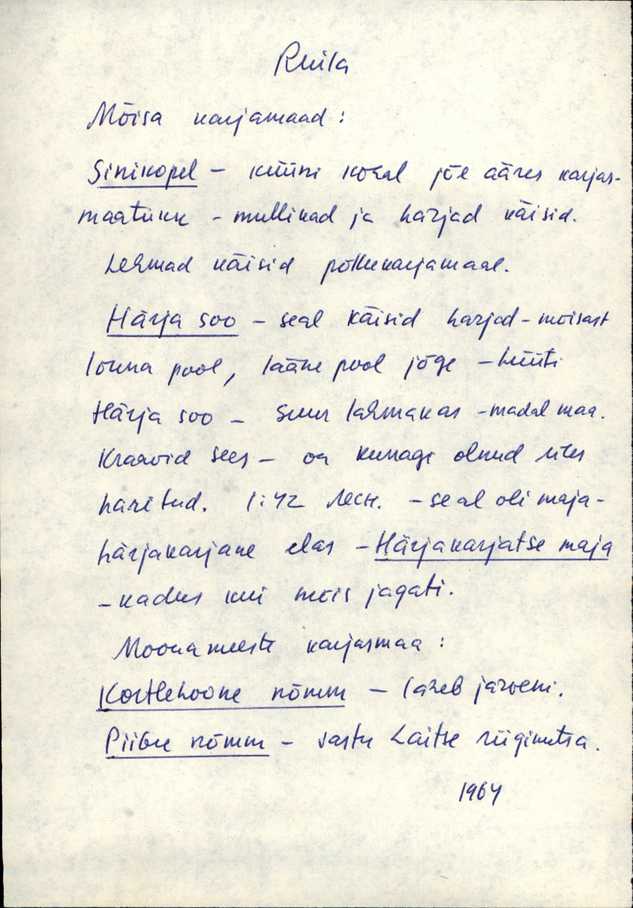 Ruila
Mõisa karjamaad:
Sinikopel – küüni kohal jõe ääres karjas-
maatükk – mullikad ja härjad käisid.
Lehmad käisid põllukarjamaal.
Härja soo – seal käisid härjad – mõisast
lõuna pool, lääne pool jõge – hüüti
Härja soo – suur lahmakas – madal maa.
Kraavid sees – on kunagi olnud üles
haritud. 1:42 лесн. – seal oli maja –
härjakarjane elas – Härjakarjatse maja
– kadus kui mõis jagati.
Moonameeste karjasmaa:
Kortlehoone nõmm – läheb järveni.
Piibu nõmm – vastu Laitse riigimetsa.
1964